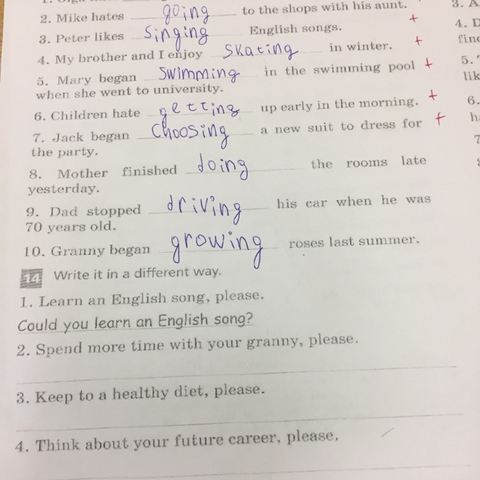 2. Mike hates going to the shops with his aunt.
3. Peter likes singing English songs. +
4. My brother and I enjoy skating in winter. +
5. Mary began swimming in the swimming pool +
when she went to university.
6. Children hate getting up early in the morning. +
7. Jack began choosing a new suit to dress for +
the party.
8. Mother finished doing the rooms late
yesterday.
9. Dad stopped driving his car when he was
70 years old.
10. Granny began growing roses last summer.
14 Write it in a different way.
1. Learn an English song, please.
Could you learn an English song?
2. Spend more time with your granny, please.
3. Keep to a healthy diet, please.
4. Think about your future career, please.
3. A
4. D
5.
6.
7